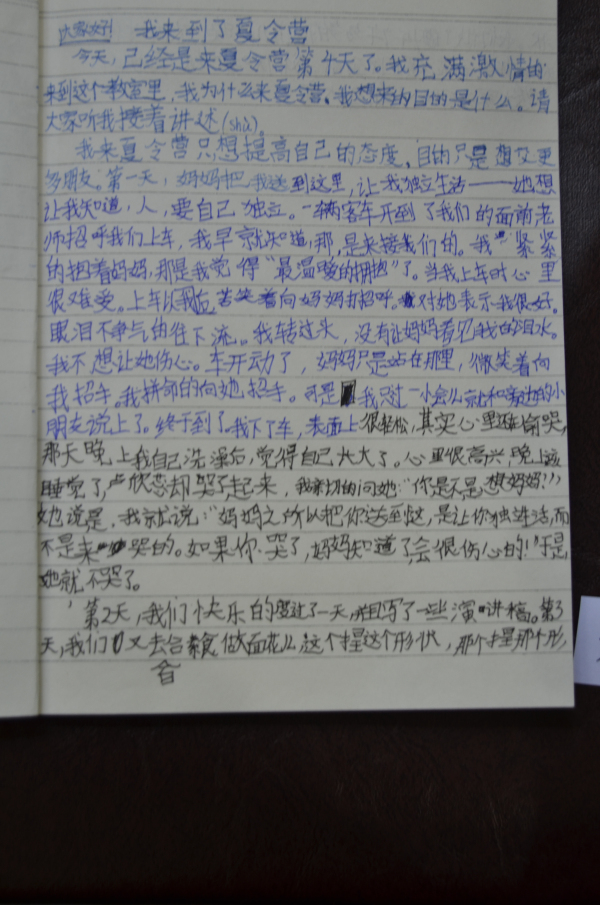 大家好! 我来到了夏令营
今天,已经是来夏令营第4天了。我充满激情的
来到这个教室里,我为什么来夏令营。我想来的目的是什么。请
大家听我接着讲述(shù)。
我来夏令营只想提高自己的态度。目的只是想交更
多朋友。第一天,妈妈把我送到这里,让我独立生活——她想
让我知道,人,要自己独立。一辆客车开到了我们的面前老
师招呼我们上车,我早就知道,那,是来接我们的。我紧紧
的抱着妈妈,那是我觉得“最温暖的拥抱”了。当我上车时心里
很难受。上车以后,苦笑着向妈妈打招呼。对她表示我很好。
眼泪不争气的往下流。我转过头,没有让妈妈看见我的泪水。
我不想让她伤心。车开动了,妈妈只是站在那里,微笑着向
我招手。我拼命的向她招手。可是我只过一小会儿就和旁边的小
朋友说上了。终于到了。我下了车,表面上很轻松,其实心里在偷哭,
那天晚上我自己洗澡后,觉得自己长大了。心里很高兴,晚上该
睡觉了,欣恋却哭了起来,我亲切的问她:“你是不是想妈妈?”
她说是,我就说:“妈妈之所以把你送到这,是让你独生活,而
不是来哭的。如果你哭了,妈妈知道了,会很伤心的!”于是
她就不哭了。
第2天,我们快乐的度过了一天,并且写了一些演讲稿。第3
天,我们又去合素食做面花儿,这个捏这个形状,那个捏那个形,